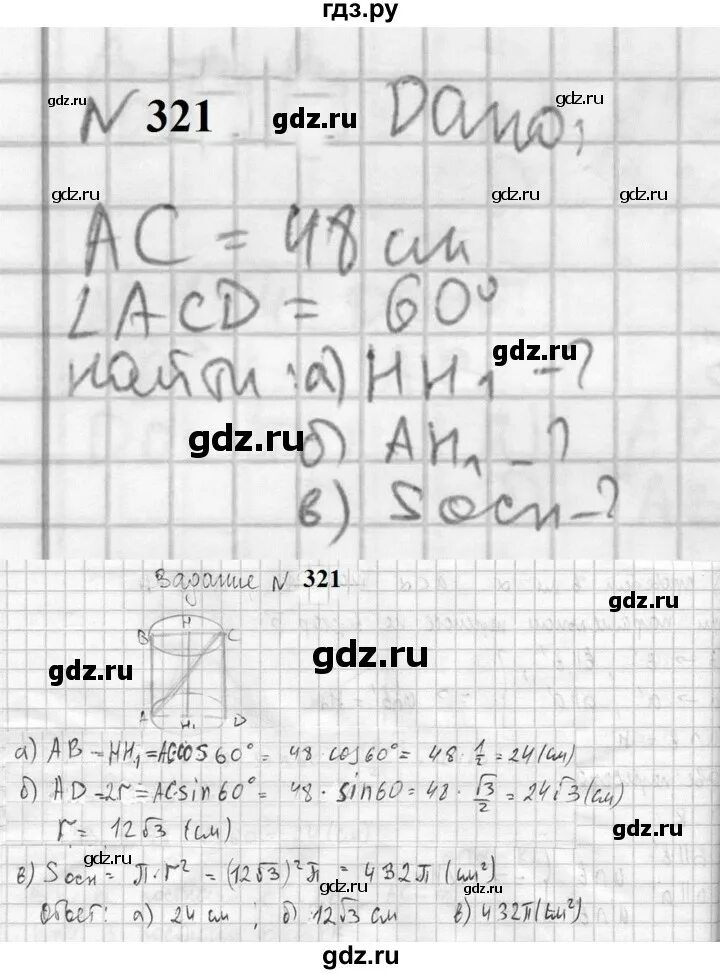 гдз.ру
gdz.ru
gdz.ru
N 321 gdz.ru Дано:
gdz.ru gdz.ru gdz.ru
AC = 48 см
∠ACD = 60°
gdz.ru
найти: а) HH₁ - ?
gdz.ru
б) AH₁ - ?
в) Sосн - ?
Задание N 321
gdz.ru
H
B C
gdz.ru gdz.ru
A H₁ D
а) AB = HH₁ = ACcos60° = 48 · cos60° = 48 · 1/2 = 24 (см)
б) AD = 2r = ACsin60° = 48 · sin60 = 48 · √3/2 = 24√3 (см)
gdz.ru
r = 12√3 (см)
gdz.ru
в) Sосн = π · r² = (12√3)²π = 432π (см²)
gdz.ru gdz.ru
Ответ: а) 24 см; б) 12√3 см в) 432π (см²)
gdz.ru